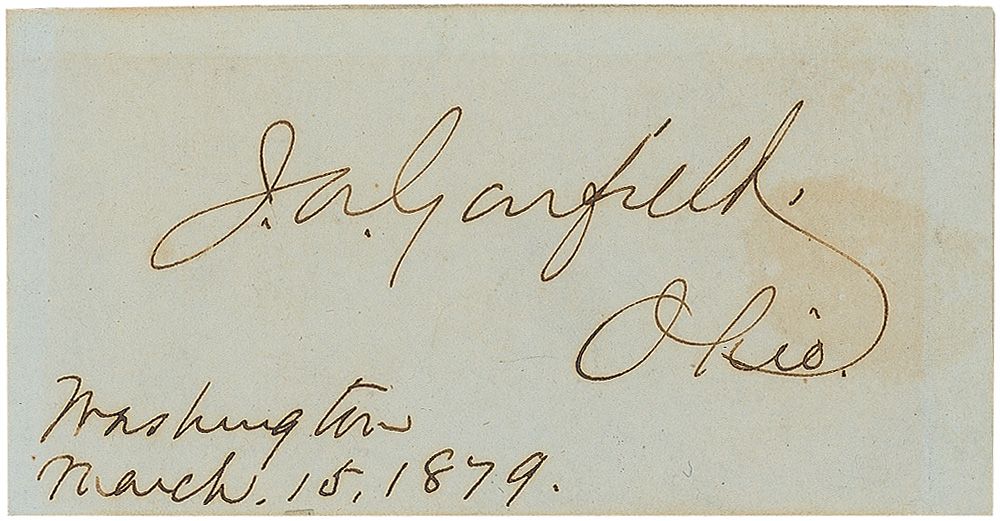 J. A. Garfield.
Ohio.
Washington
March. 15, 1879.